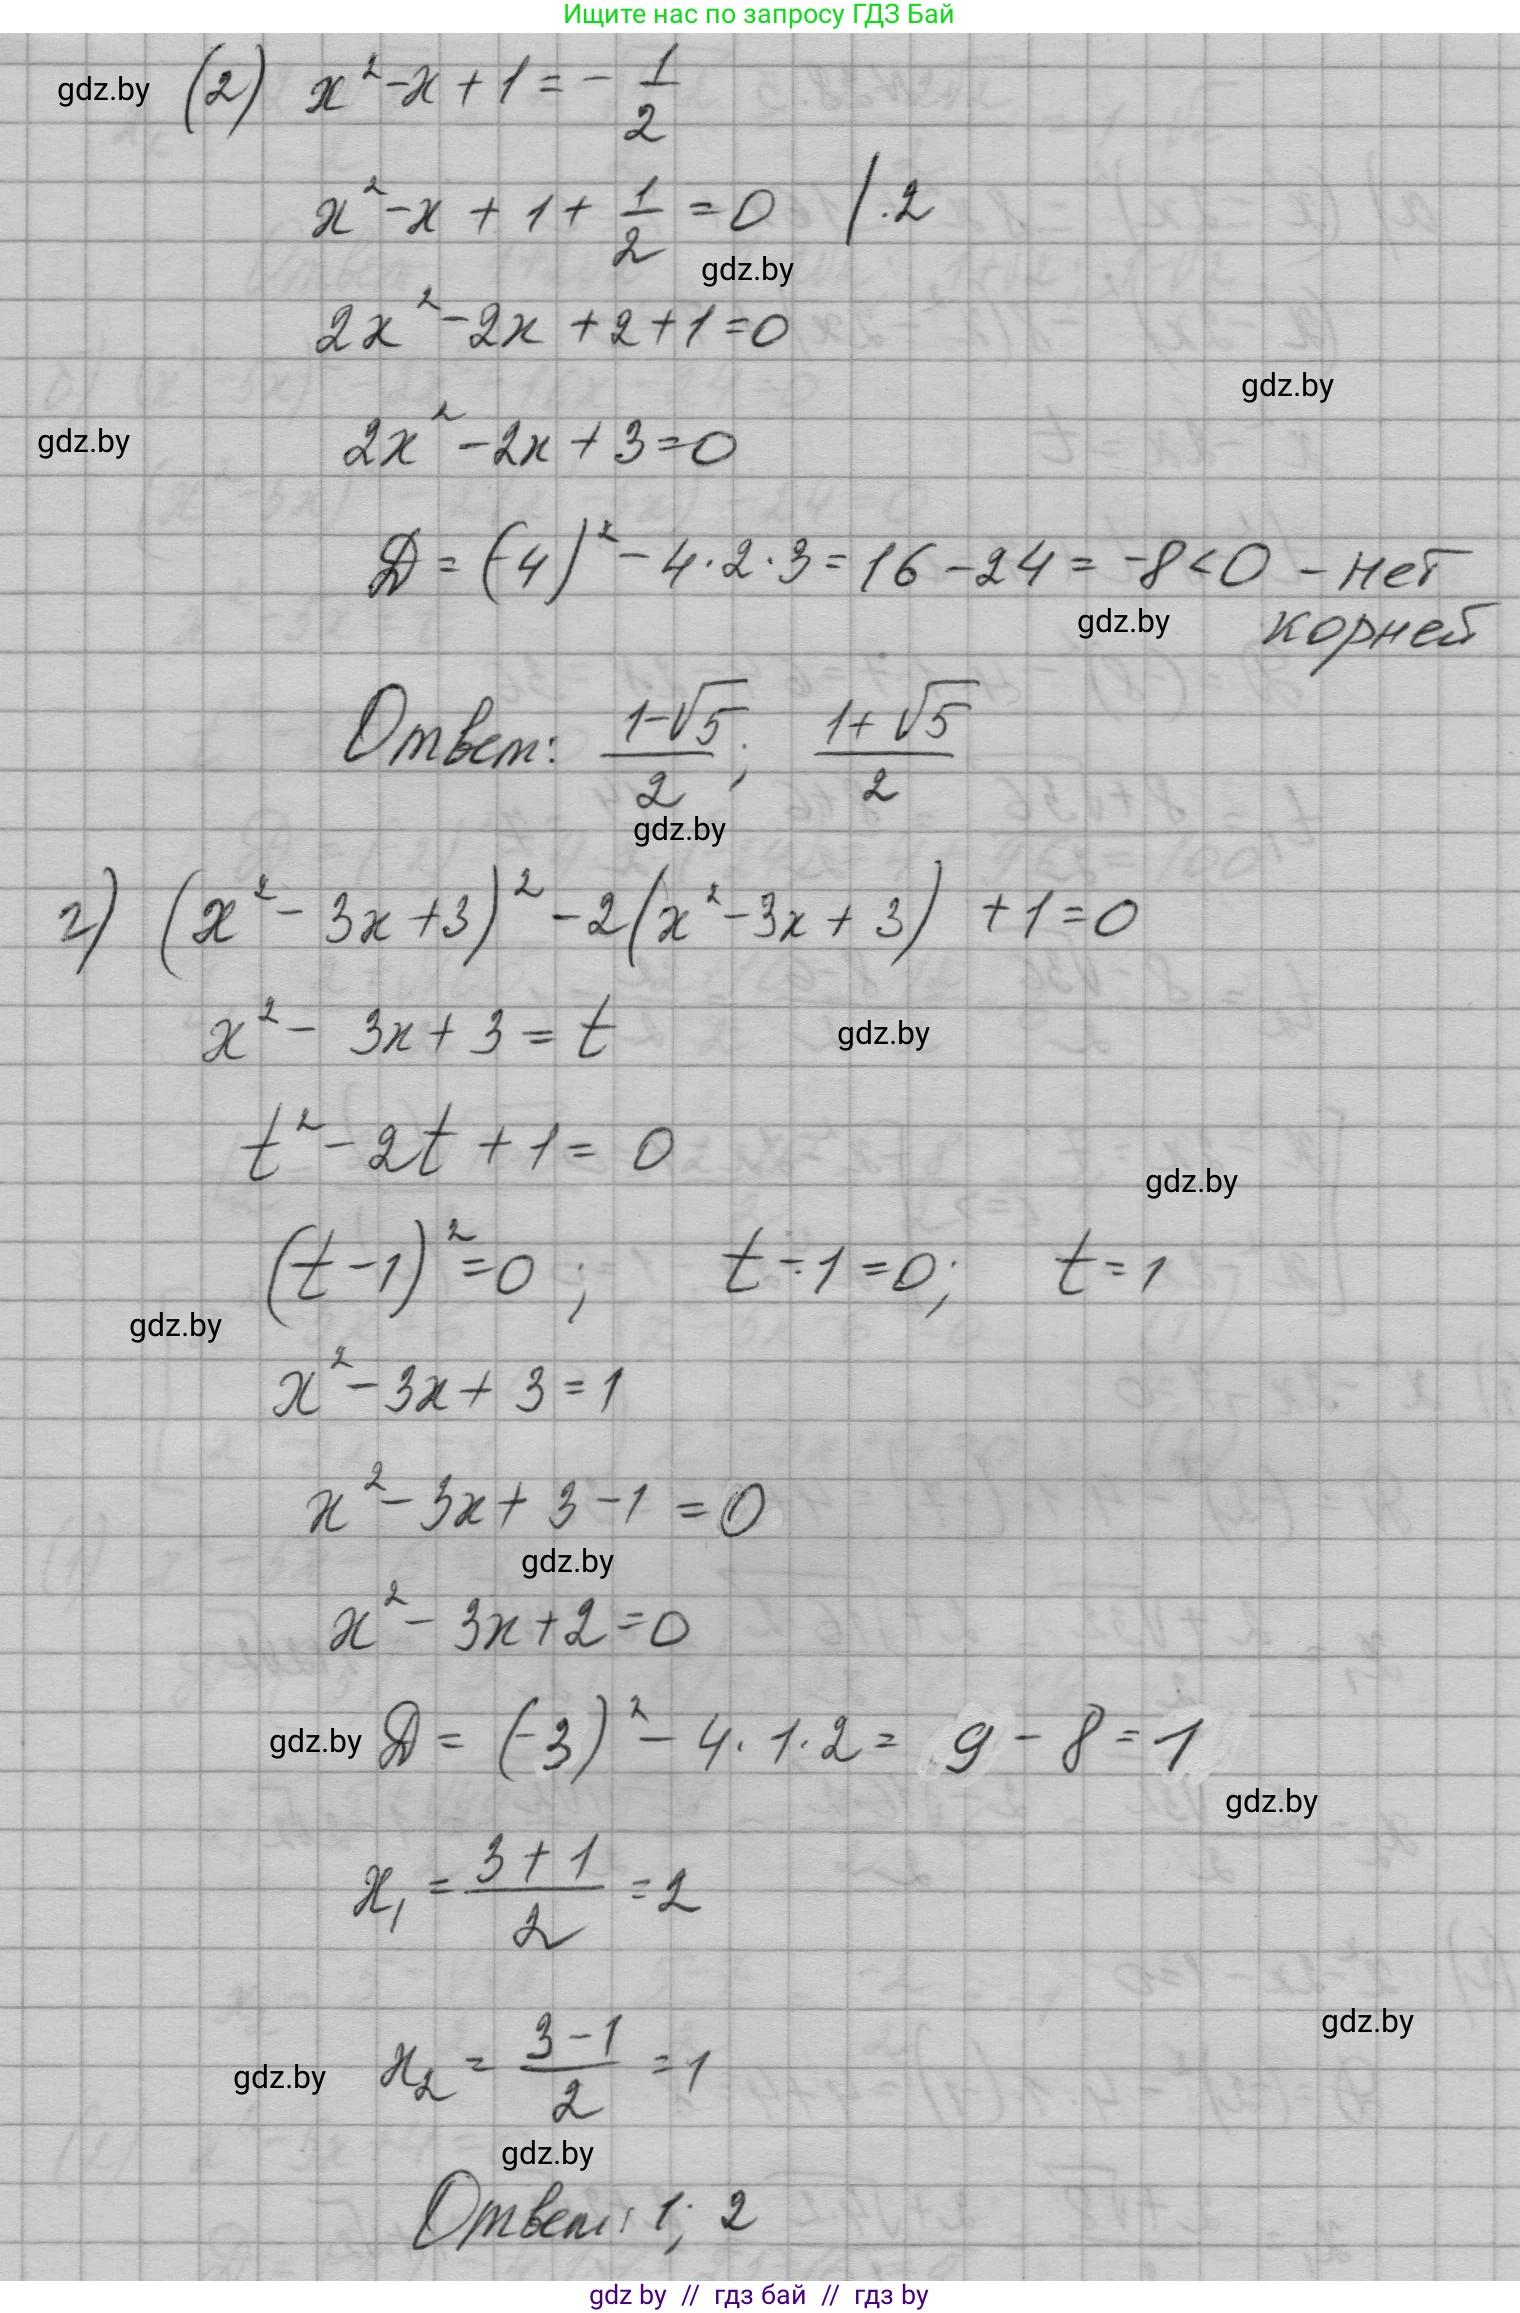 Ищите нас по запросу ГДЗ Бай
gdz.by (2) x² - x + 1 = - 1/2
x² - x + 1 + 1/2 = 0 | · 2
gdz.by
2x² - 2x + 2 + 1 = 0
gdz.by
gdz.by 2x² - 2x + 3 = 0
D = (-4)² - 4 · 2 · 3 = 16 - 24 = -8 < 0 - нет
gdz.by корней
Ответ: (1-√5)/2 ; (1+√5)/2
gdz.by
г) (x² - 3x + 3)² - 2(x² - 3x + 3) + 1 = 0
x² - 3x + 3 = t gdz.by
t² - 2t + 1 = 0
gdz.by
(t - 1)² = 0 ; t - 1 = 0; t = 1
gdz.by
x² - 3x + 3 = 1
x² - 3x + 3 - 1 = 0
gdz.by
x² - 3x + 2 = 0
gdz.by D = (-3)² - 4 · 1 · 2 = 9 - 8 = 1
gdz.by
x₁ = (3 + 1)/2 = 2
gdz.by
gdz.by x₂ = (3 - 1)/2 = 1
gdz.by
Ответ: 1; 2
gdz by // гдз бай // гдз by